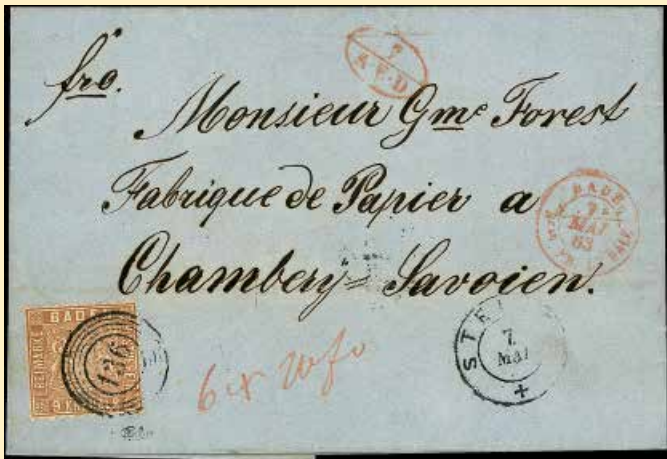 fro.
P
A.E.D.
Monsieur Gme Forest
Fabrique de Papier a
Chambery = Savoien.
BADE
7
MAI
63
BADEN
FREIMARKE
136
STE
7
MAI
+